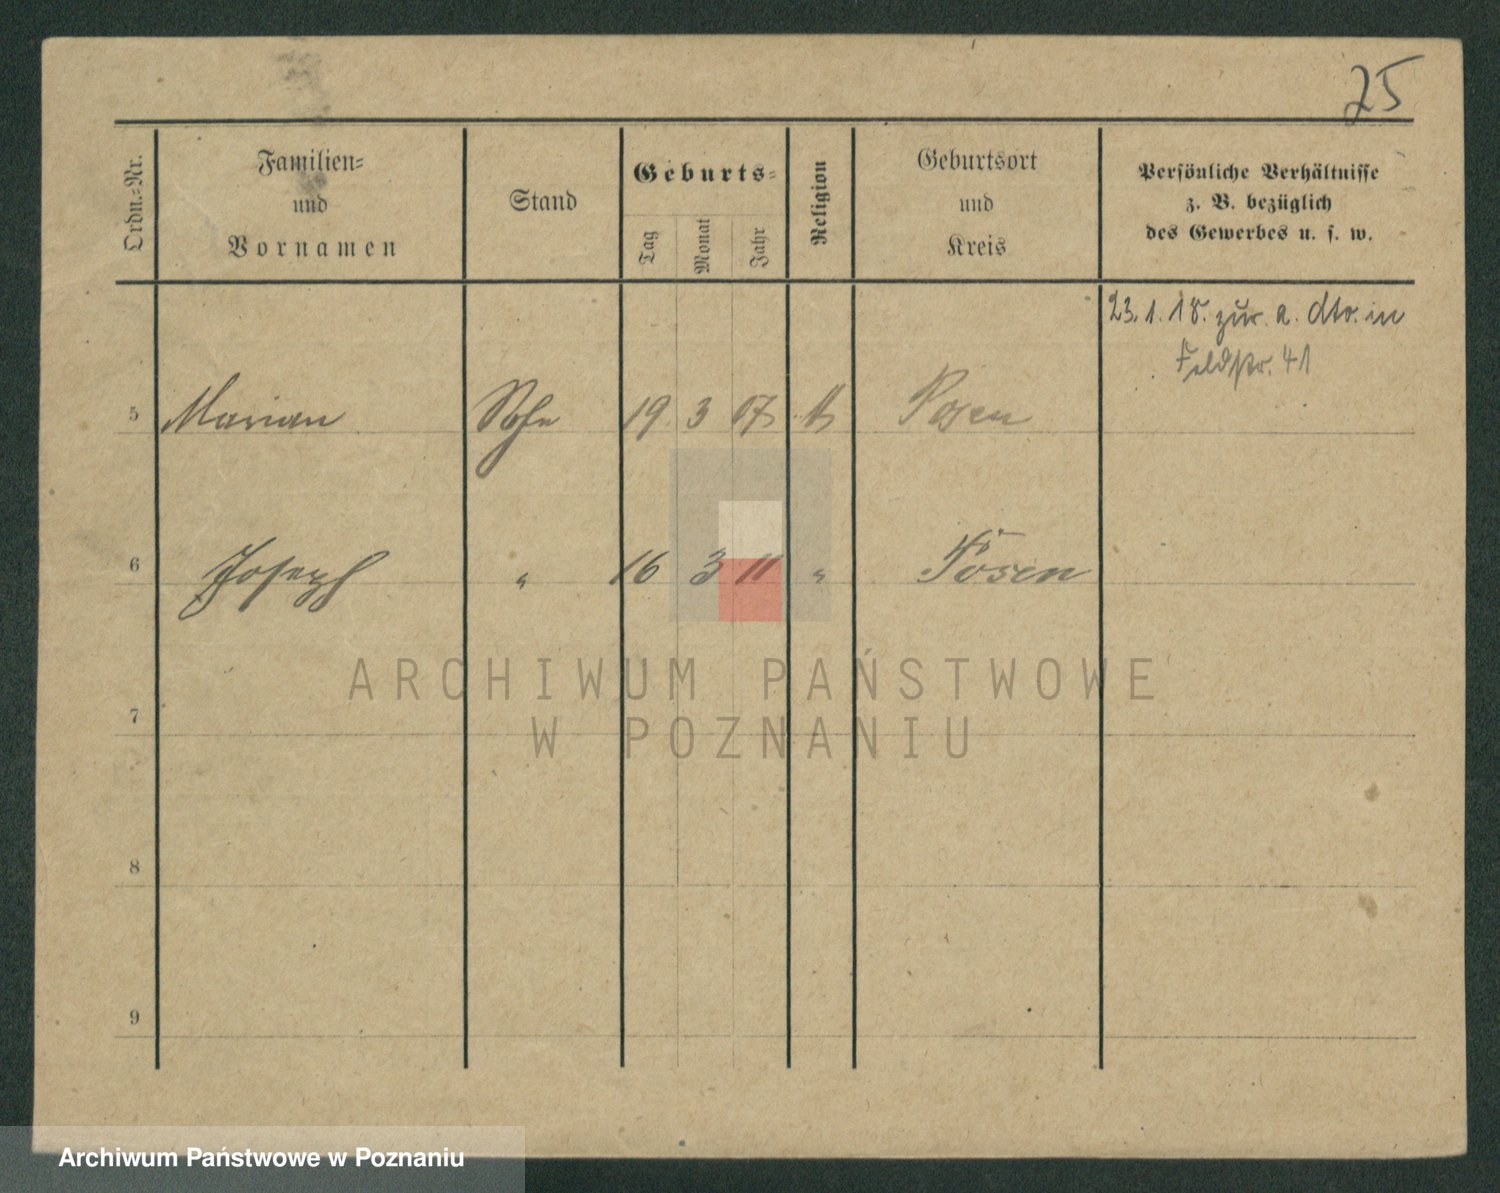 25
Ordn.-Nr.
Familien-
und
Vornamen
Stand
Geburts-
Tag
Monat
Jahr
Religion
Geburtsort
und
Kreis
Persönliche Verhältnisse
z. B. bezüglich
des Gewerbes u. s. w.
23.1.18. zur. a. dto. in
Feldstr. 41
5 Marian Sohn 19 3 07 Posen
6 Joseph " 16 3 11 " Posen
7
8
9
ARCHIWUM PAŃSTWOWE
W POZNANIU
Archiwum Państwowe w Poznaniu